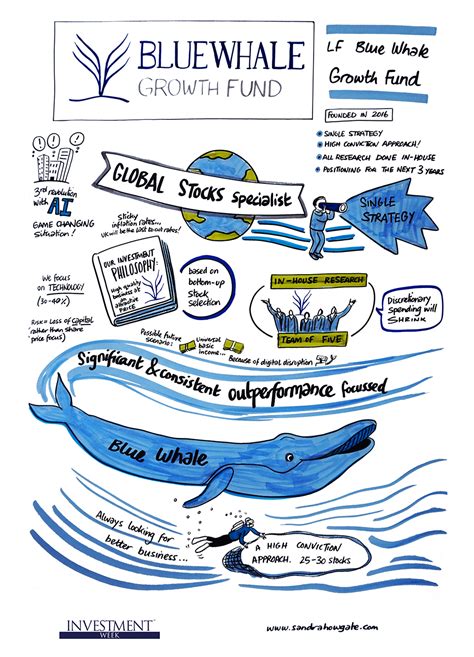 BLUEWHALE
GROWTH FUND
LF Blue Whale
Growth Fund
FOUNDED IN 2016
SINGLE STRATEGY
HIGH CONVICTION APPROACH!
ALL RESEARCH DONE IN-HOUSE
POSITIONING FOR THE NEXT 3 YEARS
! ! !
3rd revolution
with AI
GAME CHANGING
situation!
GLOBAL STOCKS specialist
SINGLE
STRATEGY
sticky
inflation rates...
UK will be the last to cut rates!
OUR INVESTMENT
PHILOSOPHY:
High quality
business at
attractive
PRICE
based on
bottom-up
stock
selection
IN-HOUSE RESEARCH
TEAM OF FIVE
Discretionary
spending will
SHRINK
We focus
on TECHNOLOGY
(30-40%)
RISK = Loss of capital
rather than share
price focus)
Possible future
scenario:
Universal
basic
income...
Because of digital disruption
Significant & consistent outperformance focussed
Blue Whale
Always looking for
better business...
A HIGH CONVICTION
APPROACH. 25-30 stocks
INVESTMENT
WEEK
www.sandrahowgate.com